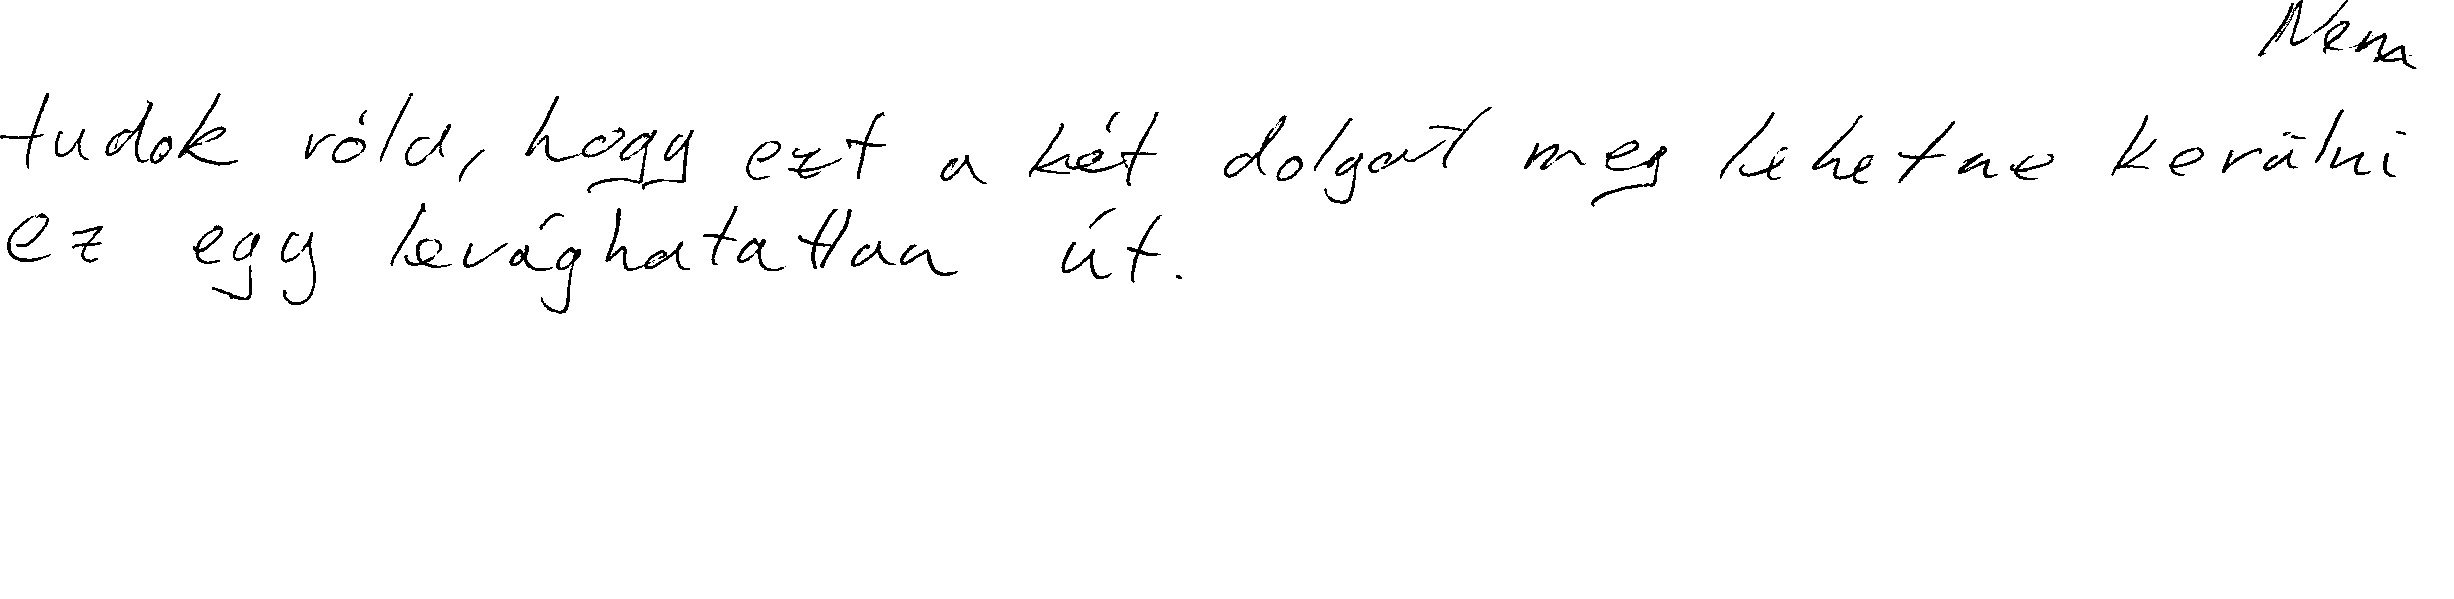 Nem
tudok róla, hogy ezt a két dolgot meg lehetne kerülni
ez egy levághatatlan út.